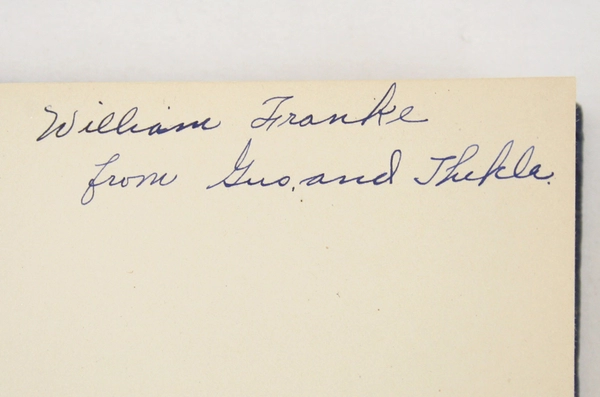 William Franke
from Gus. and Thekla.